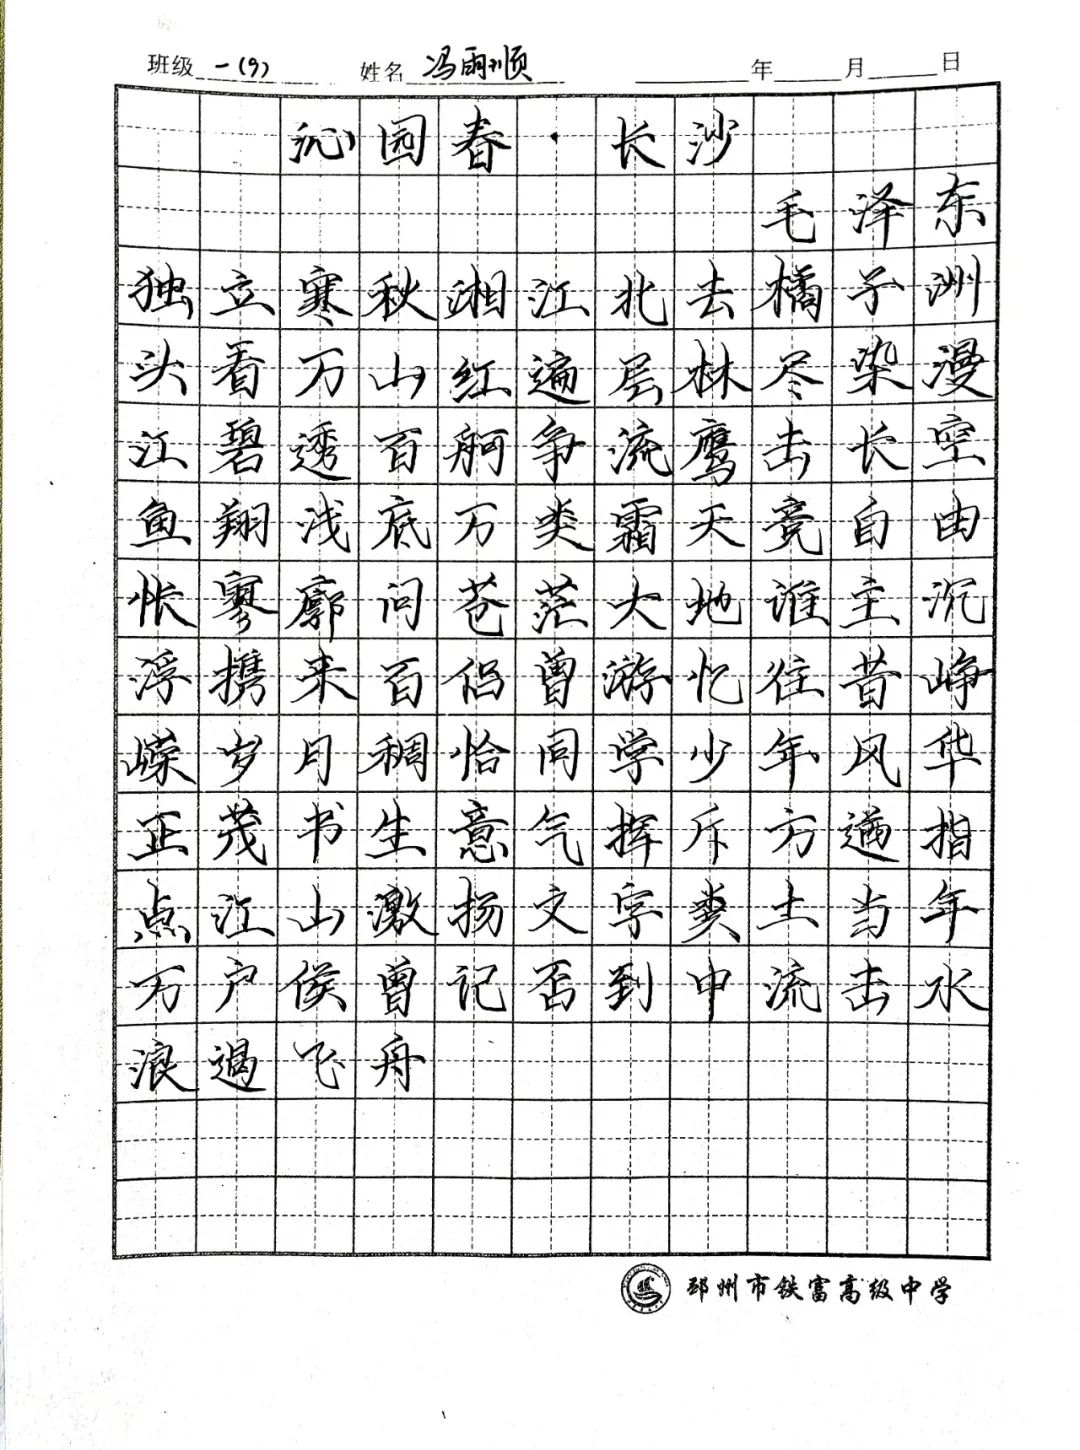 班级 一(9) 姓名 冯雨顺 年 月 日
沁园春·长沙
毛泽东
独立寒秋湘江北去橘子洲
头看万山红遍层林尽染漫
江碧透百舸争流鹰击长空
鱼翔浅底万类霜天竞自由
怅寥廓问苍茫大地谁主沉
浮携来百侣曾游忆往昔峥
嵘岁月稠恰同学少年风华
正茂书生意气挥斥方遒指
点江山激扬文字粪土当年
万户侯曾记否到中流击水
浪遏飞舟
邳州市铁富高级中学